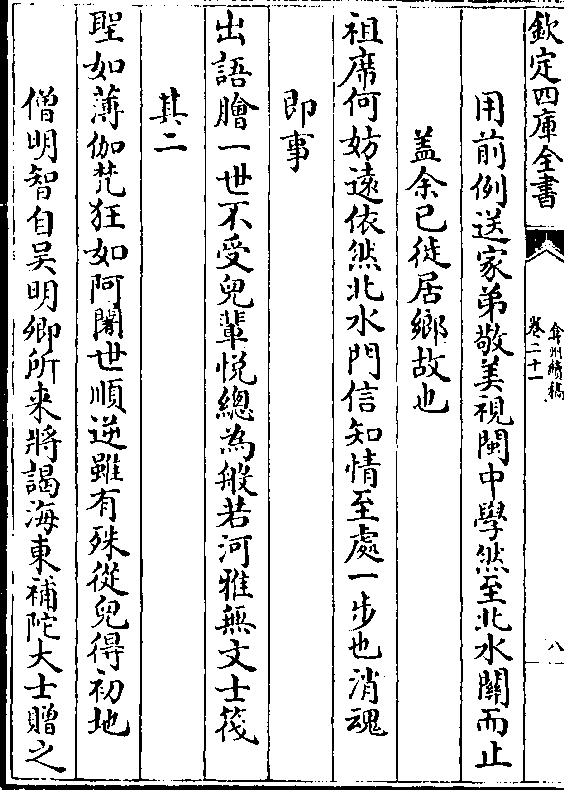 欽定四庫全書
弇州續稿
卷二十一
八
用前例送家弟敬美視閩中學然至北水關而止
盖余已徙居鄉故也
祖席何妨遠依然北水門信知情至處一步也消魂
即事
出語膾一世不受兒輩悦總為般若河雅無文士筏
其二
聖如薄伽梵狂如阿闍世順逆雖有殊從兒得初地
僧明智自吴明卿所来將謁海東補陀大士贈之